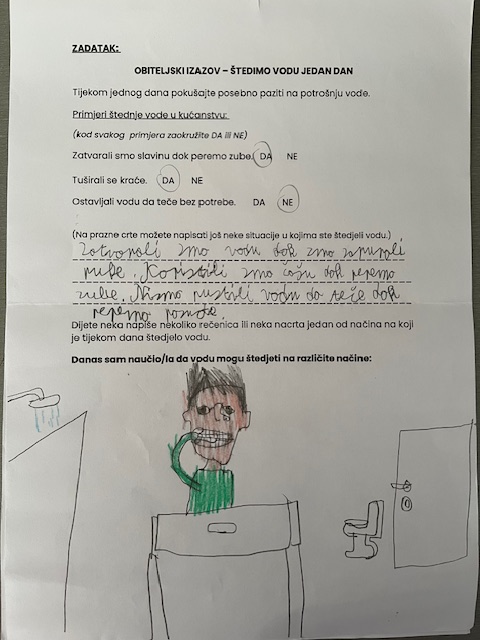 ZADATAK:
OBITELJSKI IZAZOV – ŠTEDIMO VODU JEDAN DAN
Tijekom jednog dana pokušajte posebno paziti na potrošnju vode.
Primjeri štednje vode u kućanstvu:
(kod svakog primjera zaokružite DA ili NE)
Zatvarali smo slavinu dok peremo zube. DA NE
Tuširali se kraće. DA NE
Ostavljali vodu da teče bez potrebe. DA NE
(Na prazne crte možete napisati još neke situacije u kojima ste štedjeli vodu.)
Zatvorali smo vodu dok smo
ruke. Koristili smo čašu dok peremo
zube. Nismo pustili vodu da teče dok
peremo
Dijete neka napiše nekoliko rečenica ili neka nacrta jedan od načina na koji
je tijekom dana štedjelo vodu.
Danas sam naučio/la da vodu mogu štedjeti na različite načine: